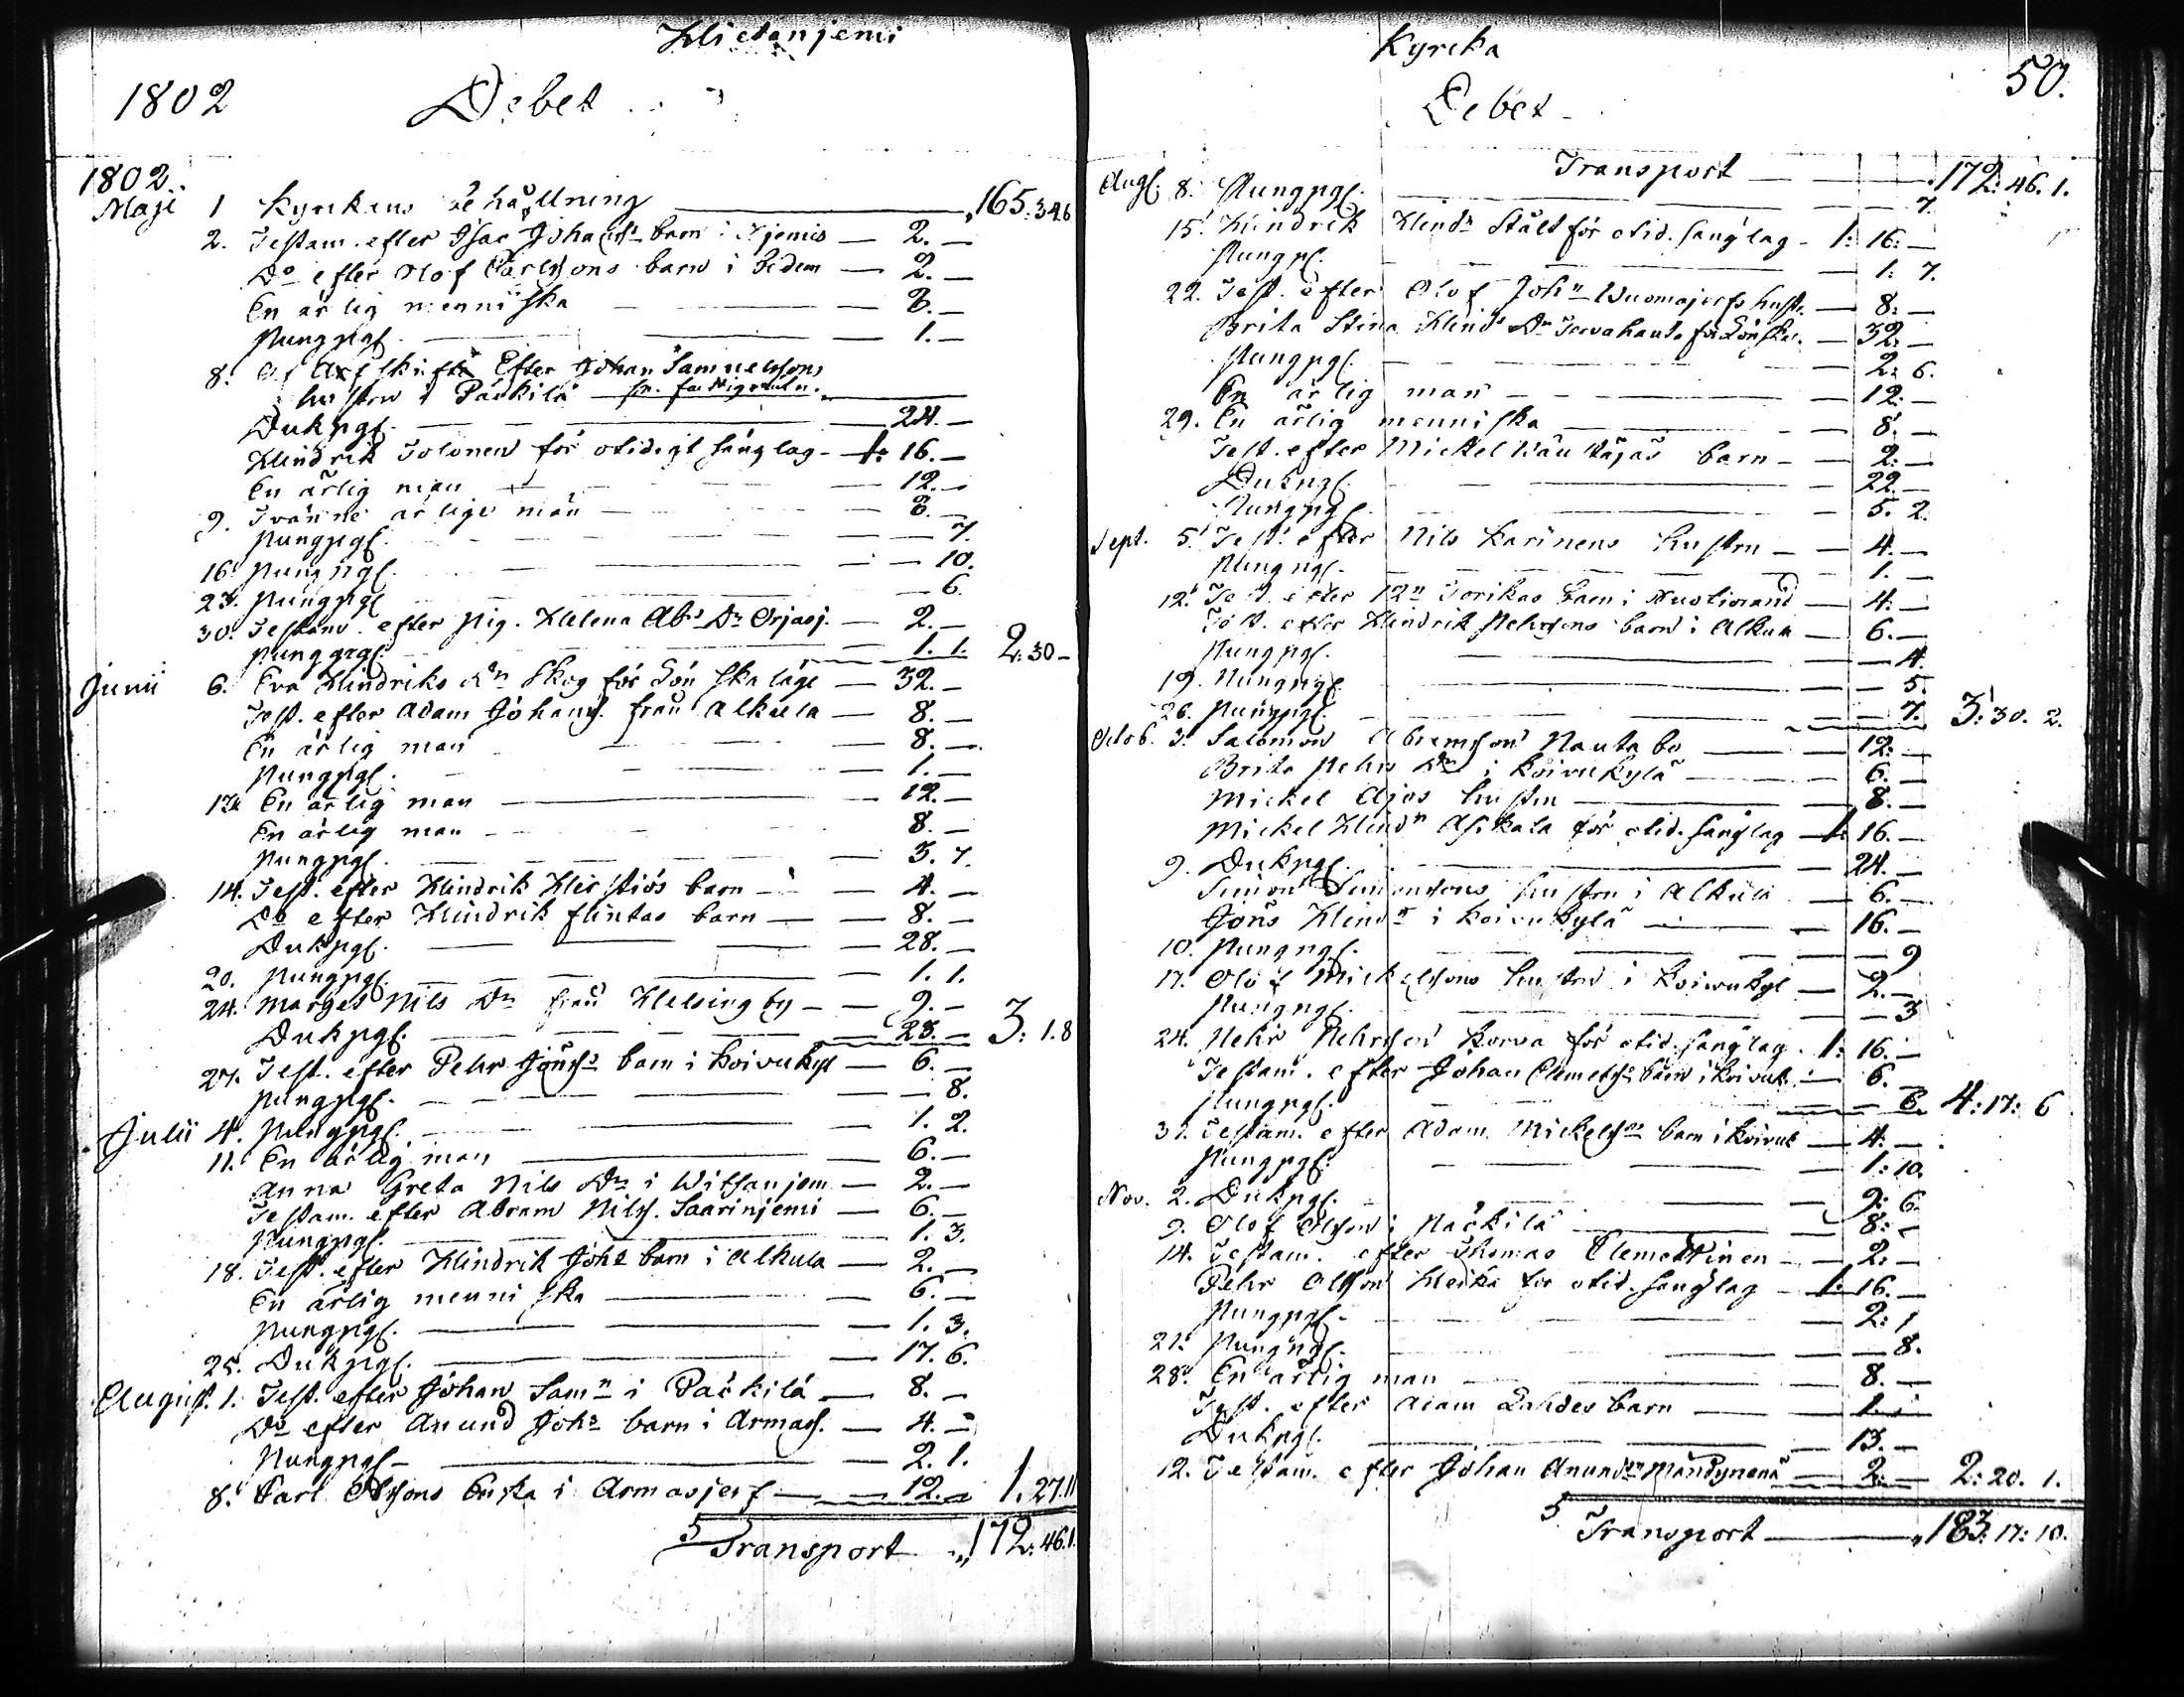 Hietanjemi
1802 Debet
1802.
Maji 1 Kyrkans behållning 165:34.6
2. Testam. efter Isac Johans. barn i Njemis 2. —
Do efter Olof Carlssons barn i bidem 2. —
En ärlig menniska 8. —
Pungpgr. 1. —
8. Af Arfskifte Efter Johan Samuelssons
hustru i Päckilä
Dukpgr. 24. —
Hindrik Tolonen för otidigt sänglag 1: 16. —
En ärlig man 12. —
9. Tvänne ärlige män 8. —
Pungpgr. 7.
16. Pungpgr. 10.
23. Pungpgr. 6.
30. Testam. efter Pig. Helena Abr. Dr Orjasj. 2. —
Pungpgr. 1. 1. 2:30 —
Junii 6. Eva Hindriks Dr Skog för Lönskaläge 32. —
Test. efter Adam Johans. från Alkula 8. —
En ärlig man 8. —
Pungpgr. 1. —
12. En ärlig man 12. —
En ärlig man 8. —
Pungpgr. 3. 7.
14. Test. efter Hindrik barn 4. —
Do efter Hindrik Flintas barn 8. —
Dukpgr. 28. —
20. Pungpgr. 1. 1.
24. Marget Nils Dr från Helsingby 9. —
Dukpgr. 23. — 3: 1.8
27. Test. efter Pehr Jöns. barn i Koivukyl 6. —
Pungpgr. 8.
Julii 4. Pungpgr. 1. 2.
11. En ärlig man 6. —
Anna Greta Nils Dr i Witsanjem 2. —
Testam. efter Abram Nils. Saarinjemi 6. —
Pungpgr. 1. 3.
18. Test. efter Hindrik Johs barn i Alkula 2. —
En ärlig menniska 6. —
Pungpgr. 1. 3.
25. Dukpgr. 17. 6.
August. 1. Test. efter Johan Samn i Päckilä 8. —
Do efter Anund Johs barn i Armass. 4. —
Pungpgr. 2. 1.
8. Carl Olssons Enka i Armasjerf 12. — 1. 27.11
Transport 172:46.1.
Kyrcka
50.
Debet
Transport 172:46.1.
Aug. 8. Pungpgr. 7.
15. Hindrik Hindn Stålt för otid. sänglag 1: 16: —
Pungpgr. 1: 7.
22. Test. efter Olof John Wuomajerfs hustr. 8: —
Brita Stina Hinds Dr för Lönska. 32. —
Pungpgr. 2: 6.
En ärlig man 12. —
29. En ärlig menniska 8. —
Test. efter Mickel barn 2: —
Dukpgr. 22. —
Pungpgr. 5. 2.
Sept. 5. Test. efter Nils Karinens hustru 4. —
Pungpgr. 1. —
12. Test. efter barn i 4: —
Test. efter Hindrik Pehrsons barn i Alkula 6. —
Pungpgr. 4.
19. Pungpgr. 5.
26. Pungpgr. 7. 3:30. 2.
Octob. 3. Salomon Abramson Nautabo 12. —
Brita Pehrs Dr i Koivukylä 6. —
Mickel Ajos hustru 8. —
Mickel Hindn för otid. sänglag 1: 16. —
9. Dukpgr. 24. —
Simon Simonsons hustru i Alkula 6. —
Jöns Hindn i Koivukylä 16. —
10. Pungpgr. 9
17. Olof Mickelssons hustru i Koivukyl 2. —
Pungpgr. 3
24. Pehr Pehrsson Korva för otid. sänglag 1: 16. —
Testam. efter Johan Clemets. barn i Koivuk. 6. —
Pungpgr. 6. 4:17: 6
31. Testam. efter Adam Mickelss. barn i Koivuk 4. —
Pungpgr. 1: 10.
Nov. 2. Dukpgr. 9: 6.
9. Olof Olsson i Päckilä 8: —
14. Testam. efter Thomas Clemettinen 2: —
Pehr Olsson Heika för otid. sänglag 1: 16. —
Pungpgr. 2: 1
21. Pungpgr. 8.
28. En ärlig man 8. —
Test. efter Adam barn 1. —
Dukpgr. 13. —
12. Testam. efter Johan Anundsn 2: — 2:20. 1.
Transport 183:17:10.